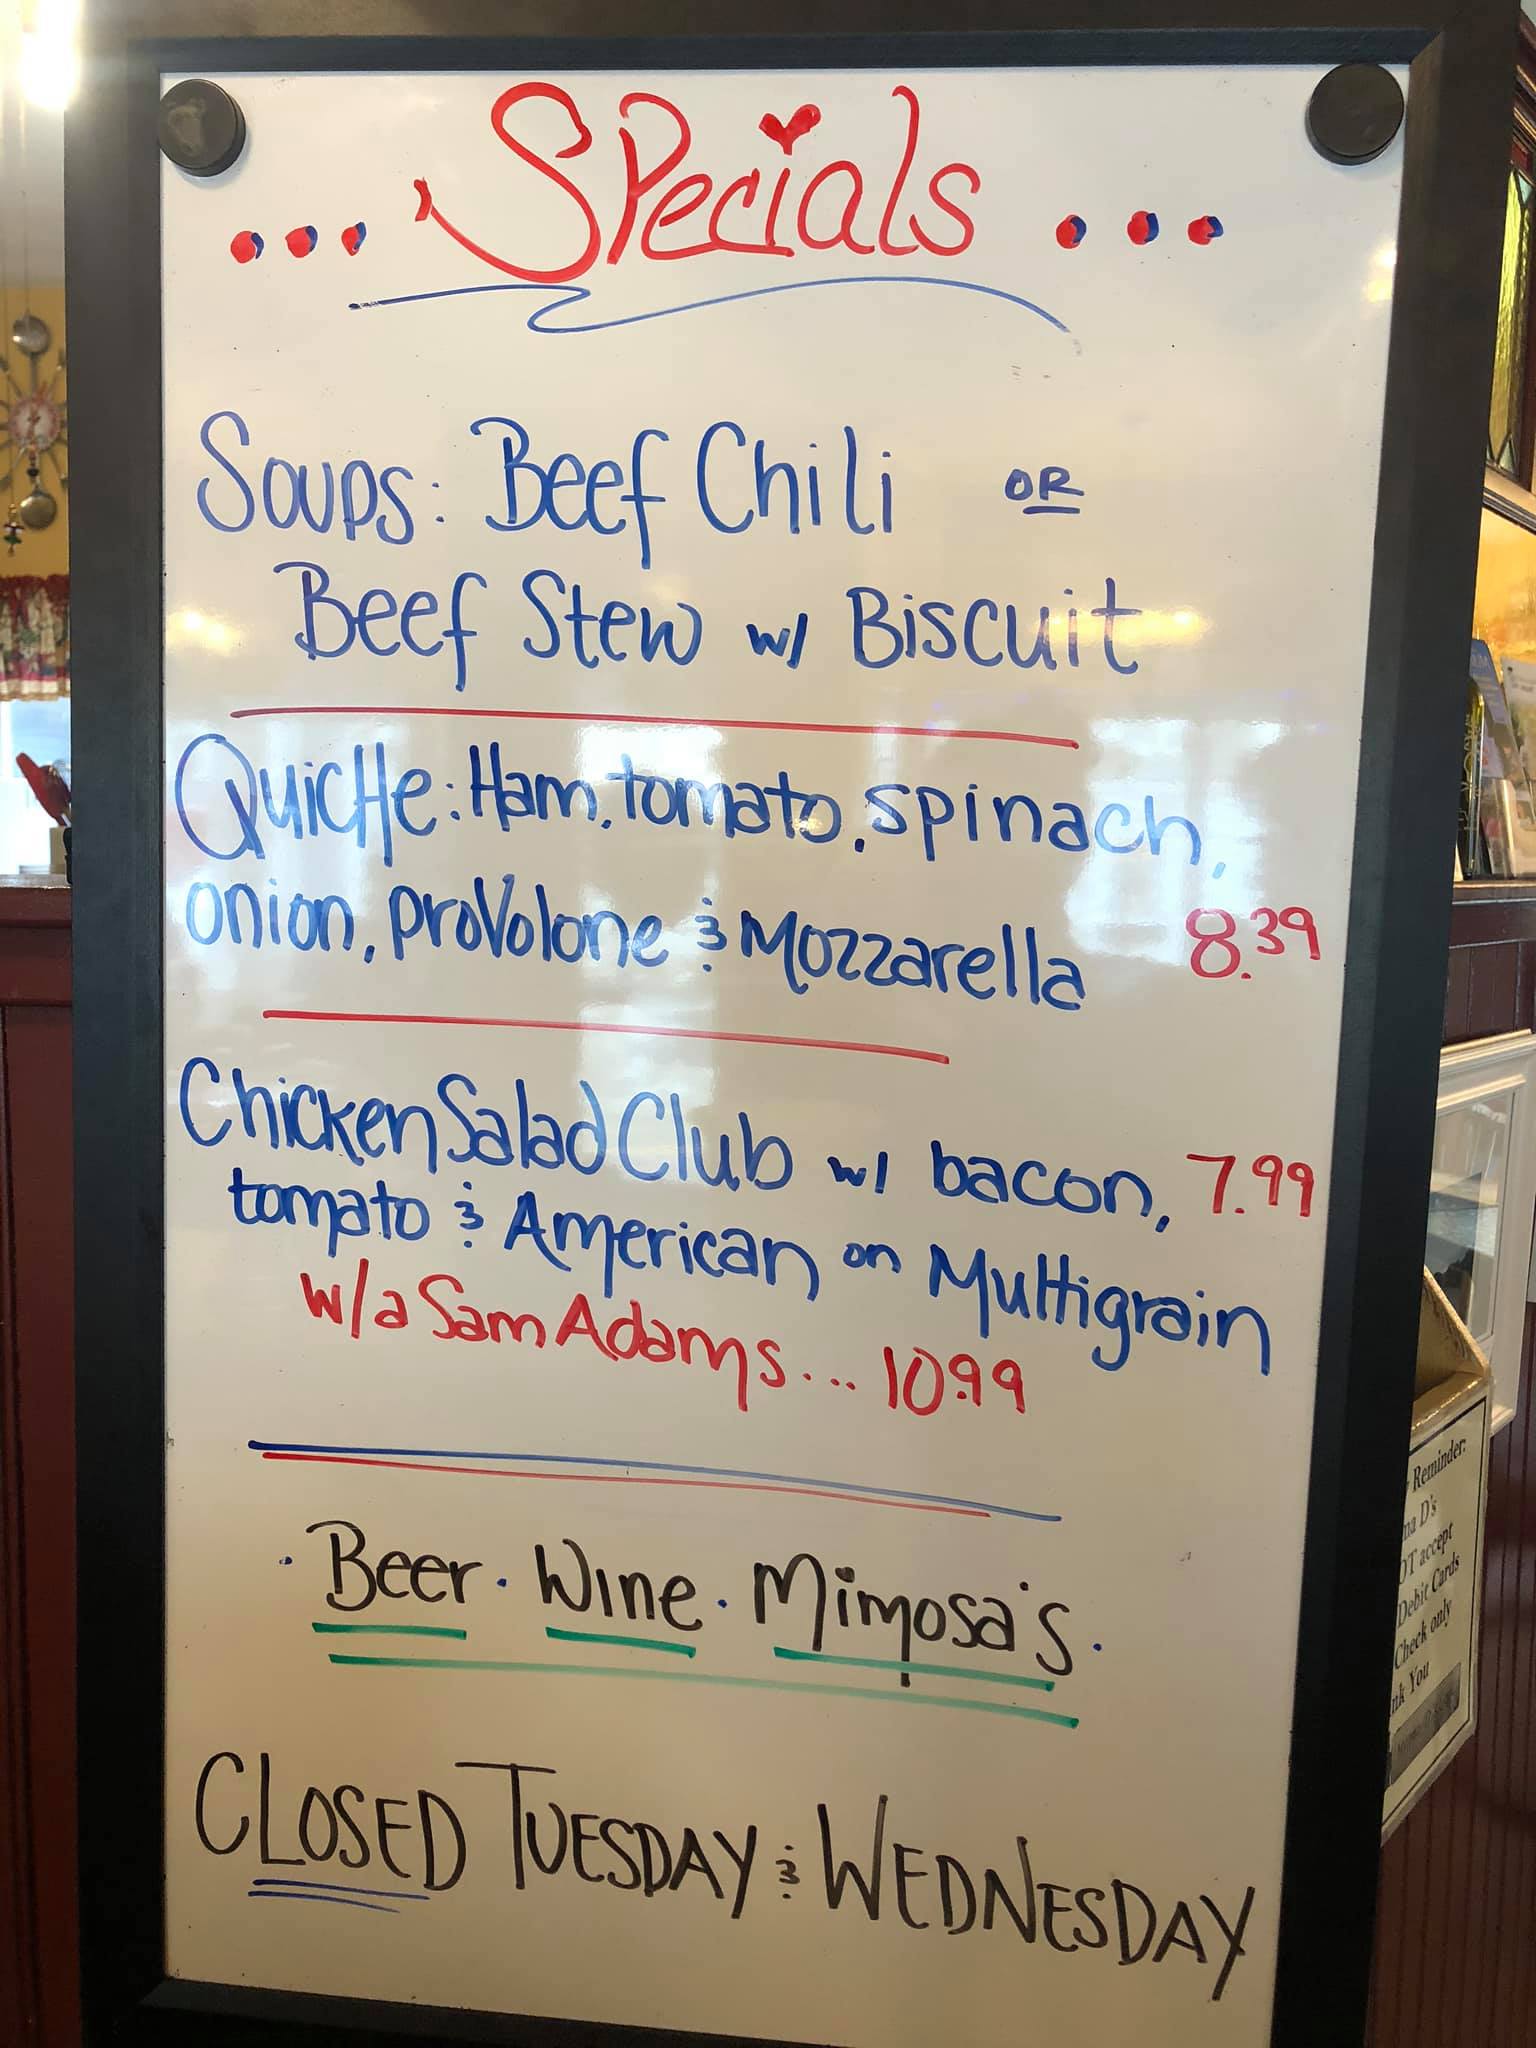 ... Specials ...
Soups: Beef Chili OR
Beef Stew w/ Biscuit
Quiche: Ham, tomato, spinach,
onion, Provolone & Mozzarella 8.39
Chicken Salad Club w/ bacon, 7.99
tomato & American on Multigrain
w/a Sam Adams... 10.99
· Beer · Wine · Mimosa's ·
CLOSED TUESDAY & WEDNESDAY
Reminder:
D's
accept
Debit Cards
Check only
You